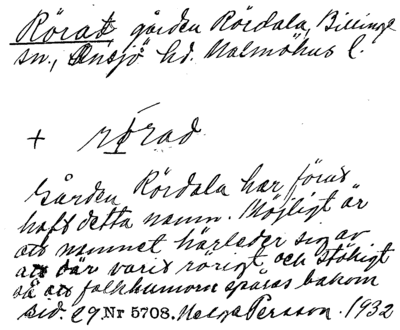 Rörat gården Rördala, Billinge
sn., Onsjö hd. Malmöhus l.
+ rörad
Gården Rördala har förut
haft detta namn. Möjligt är
att namnet härleder sig av
att där varit rörigt och stökigt
så att folkhumorn spåras bakom
sid. 29 Nr 5708. Helga Persson. 1932